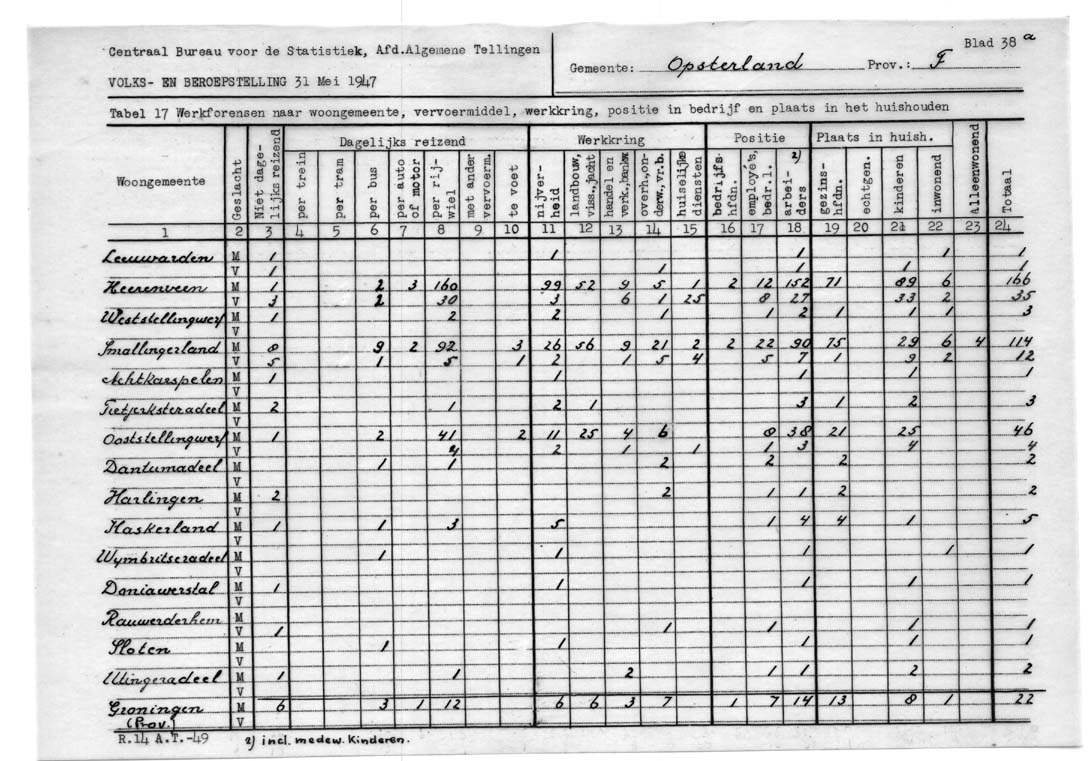 Centraal Bureau voor de Statistiek, Afd.Algemene Tellingen
VOLKS- EN BEROEPSTELLING 31 Mei 1947
Gemeente: Opsterland Prov.: F
Blad 38a
Tabel 17 Werkforensen naar woongemeente, vervoermiddel, werkkring, positie in bedrijf en plaats in het huishouden
Woongemeente Geslacht Niet dage-lijks reizend Dagelijks reizend Werkkring Positie Plaats in huish. Alleenwonend Totaal
per trein per tram per bus per auto of motor per rij-wiel met ander vervoerm. te voet nijver-heid landbouw, viss., jacht handel en verk., bankw. overh., on-derw., vr.b. huiselijke diensten bedrijfs-hfdn. employé's, bedr.l. arbei-ders 2) gezins-hfdn. echtgen. kinderen inwonend
1 2 3 4 5 6 7 8 9 10 11 12 13 14 15 16 17 18 19 20 21 22 23 24
Leeuwarden M 1 1 1 1 1
V 1 1 1 1 1
Heerenveen M 1 2 3 160 99 52 9 5 1 2 12 152 71 89 6 166
V 3 2 30 3 6 1 25 8 27 33 2 35
Weststellingwerf M 1 2 2 1 1 2 1 1 1 3
V
Smallingerland M 8 9 2 92 3 26 56 9 21 2 2 22 90 75 29 6 4 114
V 5 1 5 1 2 1 5 4 5 7 1 9 2 12
Achtkarspelen M 1 1 1 1 1
V
Tietjerksteradeel M 2 1 2 1 3 1 2 3
V
Ooststellingwerf M 1 2 41 2 11 25 4 6 8 38 21 25 46
V 4 2 1 1 1 3 4 4
Dantumadeel M 1 1 2 2 2 2
V
Harlingen M 2 2 1 1 2 2
V
Haskerland M 1 1 3 5 1 4 4 1 5
V
Wymbritseradeel M 1 1 1 1 1
V
Doniawerstal M 1 1 1 1 1
V
Rauwerderhem M
V 1 1 1 1 1
Sloten M 1 1 1 1 1
V
Utingeradeel M 1 1 2 1 1 2 2
V
Groningen M 6 3 1 12 6 6 3 7 1 7 14 13 8 1 22
(Prov.) V
R.14 A.T.-49 2) incl. medew. Kinderen.